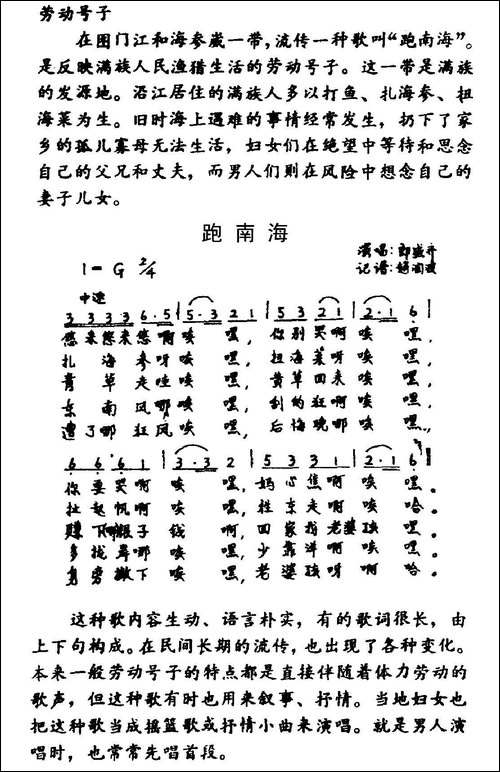 劳动号子
在图门江和海参崴一带,流传一种歌叫“跑南海”。
是反映满族人民渔猎生活的劳动号子。这一带是满族
的发源地。沿江居住的满族人多以打鱼、扎海参、扭
海菜为生。旧时海上遇难的事情经常发生,扔下了家
乡的孤儿寡母无法生活,妇女们在绝望中等待和思念
自己的父兄和丈夫,而男人们则在风险中想念自己的
妻子儿女。
跑南海
演唱:郎盛
1=G 2/4
记谱:
中速
3 3 3 3 6·5 | 5·3 2 1 | 5 3 2 1 | 2·1 6 |
悠来悠来悠啊唉 嘿,你别哭啊唉 嘿,
扎 海 参呀唉 嘿,扭海菜呀唉 嘿,
青 草 走哇唉 嘿,黄草回来 唉 嘿,
东 南 风那唉 嘿,刮的狂啊唉 嘿,
遭了哪 狂风唉 嘿,后悔晚哪唉 嘿,
6 6 6 1 | 3·3 2 | 5 3 3 1 | 2·1 6 ‖
你 要 哭 啊 唉 嘿,妈心焦啊 唉 嘿。
扯 起 帆 啊 唉 嘿,往东走啊 唉 哈。
赚下 子 钱 啊,回家找老婆孩 嘿。
多 找 哪 唉 嘿,少靠洋啊 唉 嘿。
身旁撇下 唉 嘿,老婆孩呀 啊 哈。
这种歌内容生动、语言朴实,有的歌词很长,由
上下句构成。在民间长期的流传,也出现了各种变化。
本来一般劳动号子的特点都是直接伴随着体力劳动的
歌声,但这种歌有时也用来叙事、抒情。当地妇女也
把这种歌当成摇篮歌或抒情小曲来演唱。就是男人演
唱时,也常常先唱首段。